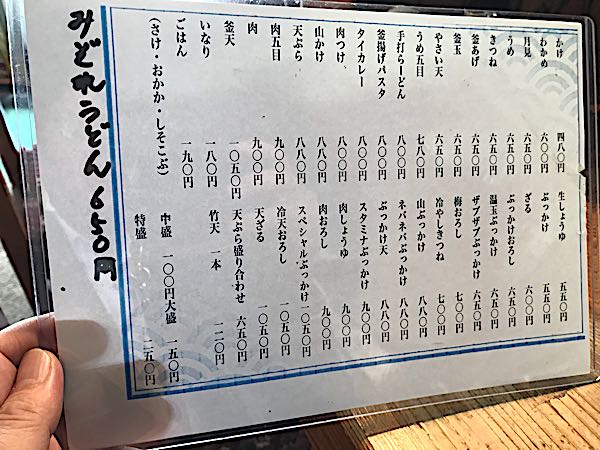 かけ 四八〇円
わかめ 六〇〇円
月見 五五〇円
うめ 五五〇円
きつね 六五〇円
釜あげ 六五〇円
釜玉 六五〇円
やさい天 六五〇円
うめ五目 七八〇円
手打らーどん 八〇〇円
釜揚げパスタ 八八〇円
タイカレー 八〇〇円
肉つけ 八〇〇円
山かけ 八八〇円
天ぷら 八八〇円
肉五目 九〇〇円
肉 九〇〇円
釜天 一〇五〇円
いなり 一八〇円
ごはん 一九〇円
(さけ・おかか・しそこぶ)
生しょうゆ 五五〇円
ぶっかけ 五五〇円
ざる 六〇〇円
ぶっかけおろし 六五〇円
温玉ぶっかけ 六五〇円
ザブザブぶっかけ 六五〇円
梅おろし 七〇〇円
冷やしきつね 七〇〇円
山ぶっかけ 八八〇円
ネバネバぶっかけ 八八〇円
ぶっかけ天 八八〇円
スタミナぶっかけ 九〇〇円
肉しょうゆ 九〇〇円
肉おろし 九〇〇円
スペシャルぶっかけ 一〇五〇円
冷天おろし 一〇五〇円
天ざる 一〇五〇円
天ぷら盛り合わせ 六五〇円
竹天 一本 一二〇円
中盛 一〇〇円 大盛 一五〇円
特盛 二五〇円
みぞれうどん 650円